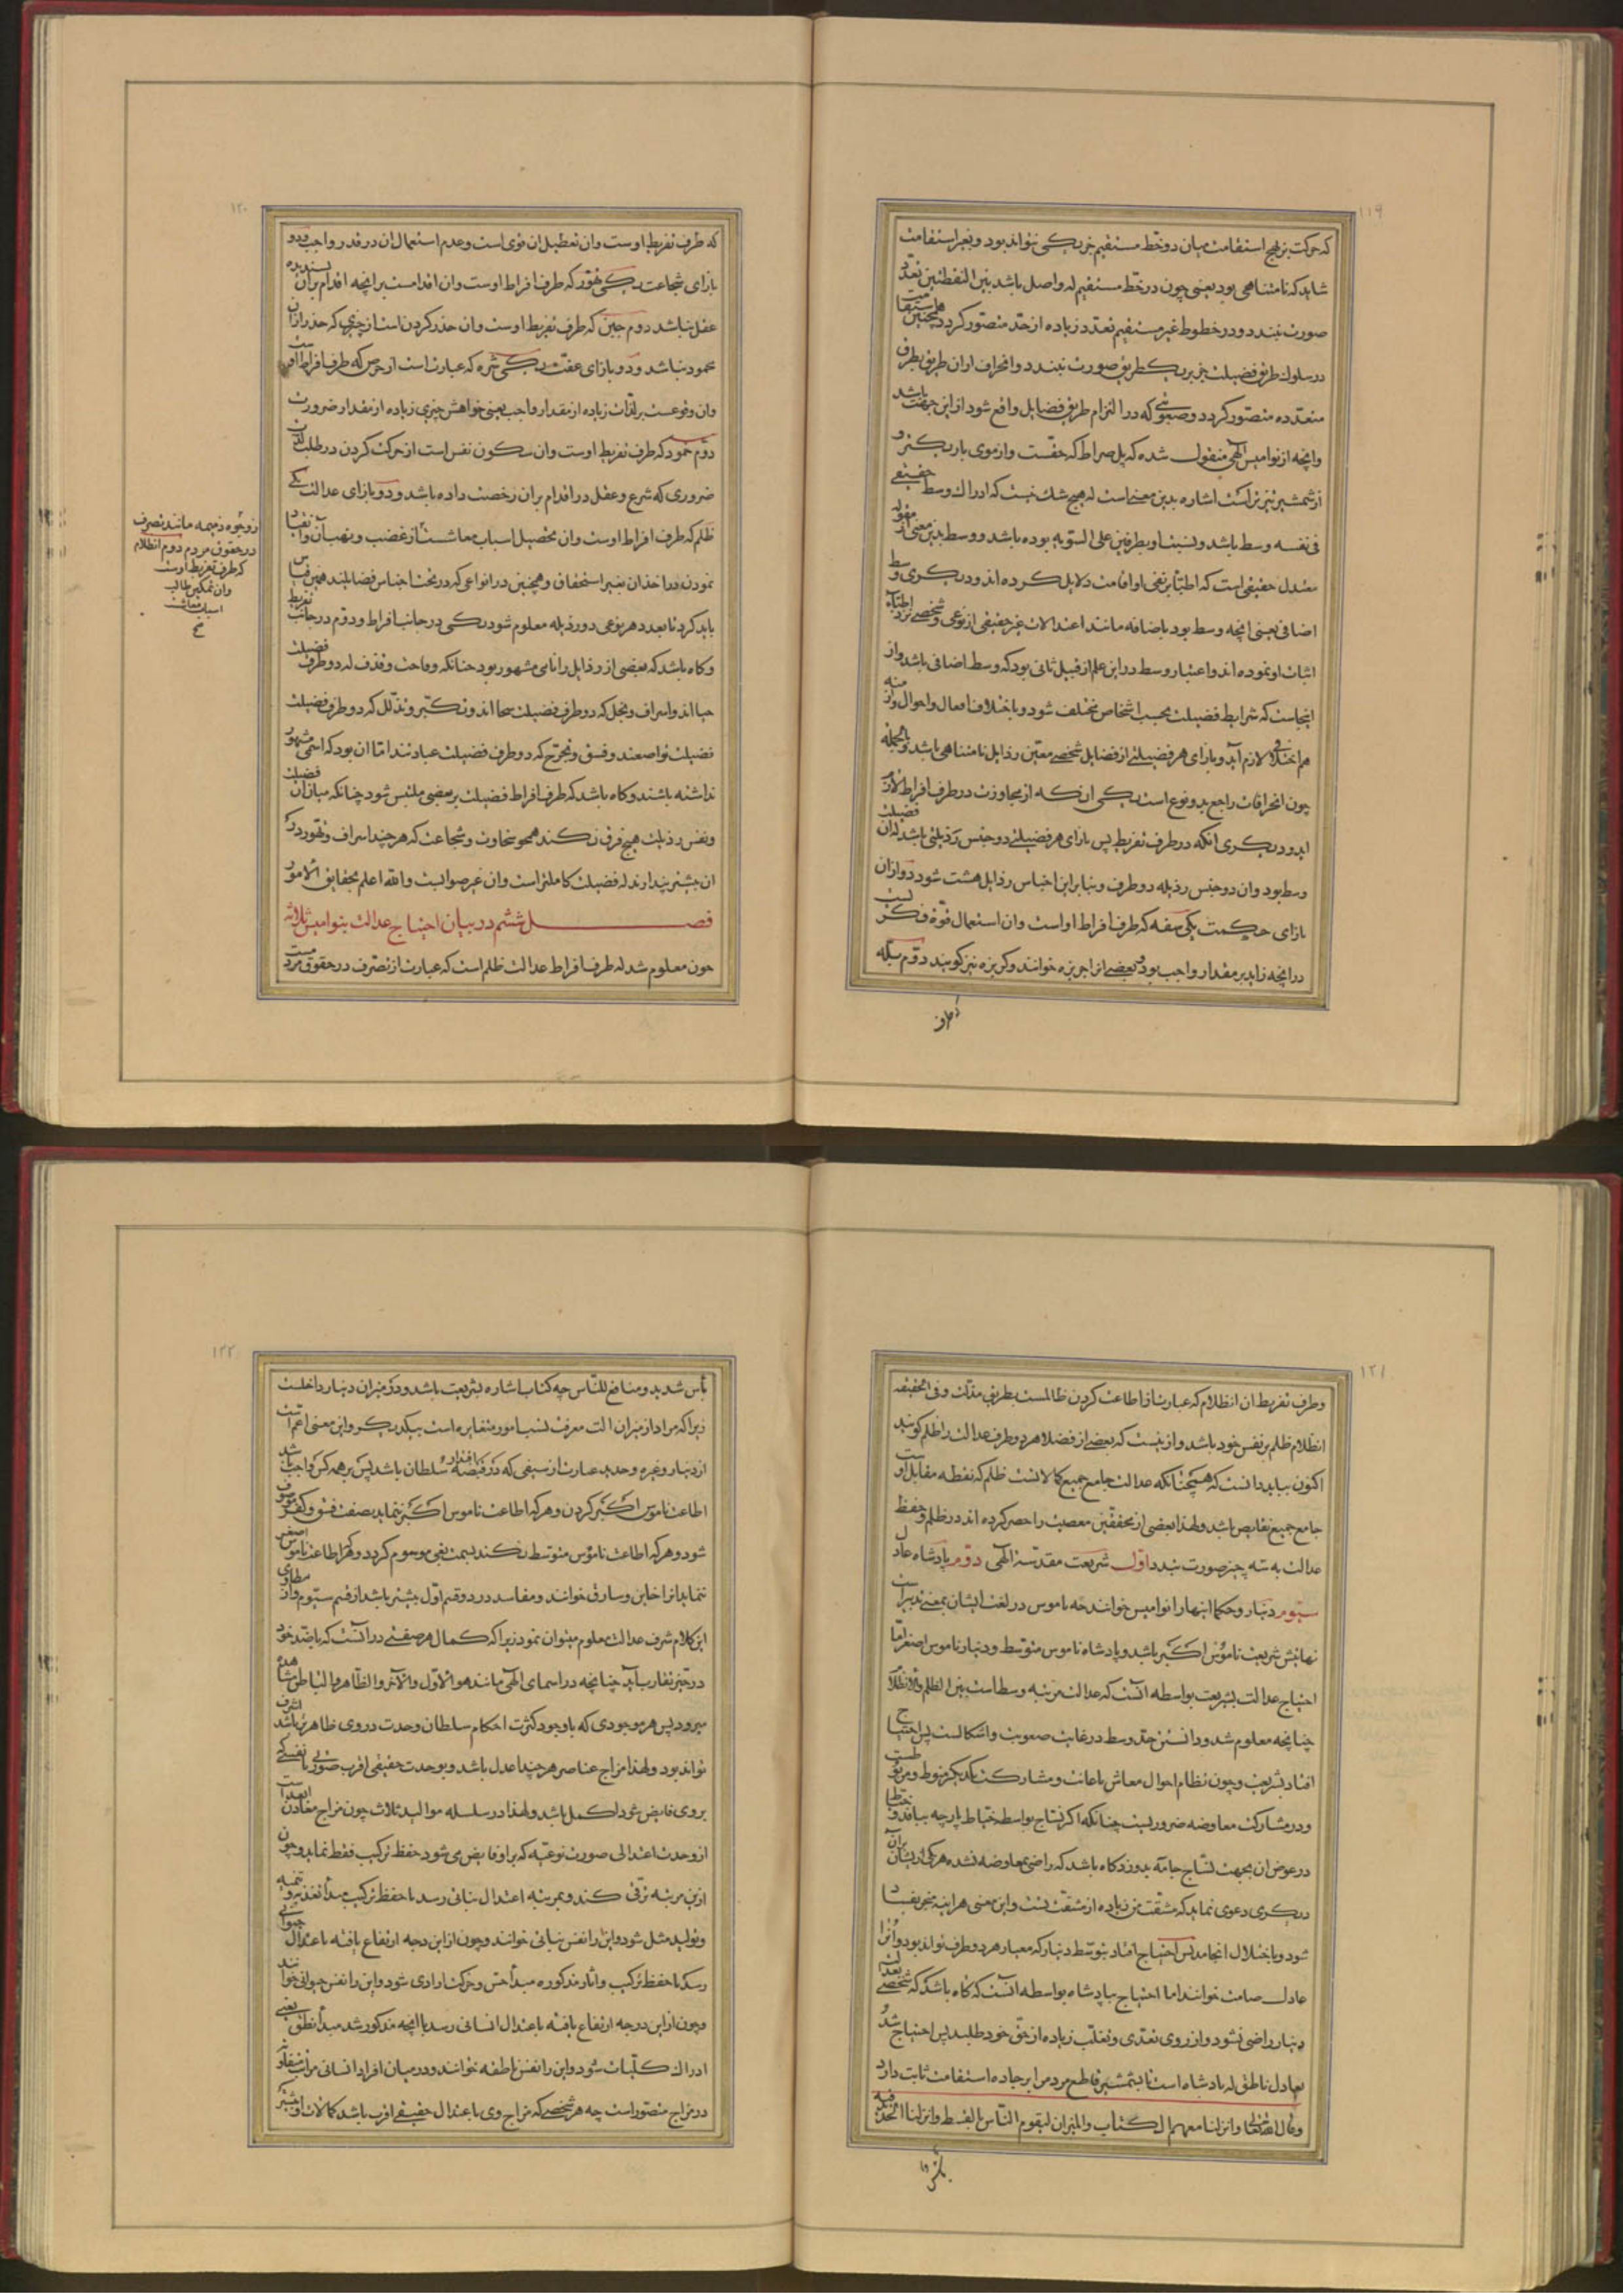 ۱۱۹
که حرکت بر نهج استقامت میان دو نقطه مستقیم جز یکی نتواند بود و بغیر استقامت
شاید که نامتناهی بود یعنی چون در خط مستقیم که واصل باشد بین النقطتین تعدد
صورت نبندد و در خطوط غیر مستقیم تعدد زیاده از حد متصور کردد همچنین استقامت
در سلوک طریق فضیلت جز بر یک طریق صورت نبندد و انحراف از ان طریق بطرف
متعدده متصور کردد و صعوبتی که در التزام طریق فضایل واقع شود از این جهت باشد
وانچه از نوامیس الهی منقول شده که پل صراط که حقست و از موی باریکتر و
از شمشیر تیزتر است اشاره بدین معنی است که هیچ شک نیست که ادراک وسط حقیقی
فی نفسه وسط باشد و نسبت او بطرفین علی السویه بوده باشد و وسط بدین معنی از مقوله
معتدل حقیقی است که اطبا بر نفی او اقامت دلایل کرده اند و دیکری وسط
اضافی یعنی انچه وسط بود باضافه مانند اعتدالات غیر حقیقی از نوعی و شخصی نزد اطبا که
اثبات او نموده اند و اعتبار وسط در این علم از قبیل ثانی بود که وسط اضافی باشد و از
اینجاست که شرایط فضیلت بحسب اشخاص مختلف شود و باختلاف افعال و احوال و ازمنه
هم اختلافی لازم آید و بازای هر فضیلتی از فضایل شخصی معین رذایل نامتناهی باشد و بالجمله
چون انحرافات راجع بدو نوع است یکی ان که از مجاوزت در طرف افراط لازم
اید و دیکری انکه در طرف تفریط پس بازای هر فضیلتی دو جنس رذیلتی باشد که ان فضیلت
وسط بود و ان دو جنس رذیله دو طرف و بنابر این اجناس رذایل هشت شود دو ازان
بازای حکمت یکی سفه که طرف افراط اوست وان استعمال قوة فکریست
در انچه زاید بر مقدار واجب بود و بعضی از اجربزه خوانند و کربزه نیز کویند دوم بله
که طرف
۱۲۰
که طرف تفریط اوست وان تعطیل ان قوی است و عدم استعمال ان در قدر واجب و دو
بازای شجاعت یکی تهور که طرف افراط اوست وان اقدامست بر انچه اقدام بران پسندیده
عقل نباشد دوم جبن که طرف تفریط اوست وان حذر کردن است از چیزی که حذر از ان
محمود نباشد و دو بازای عفت یکی شره که عبارت است از حرص که طرف افراط اوست
وان وقوعست بر لذات زیاده از مقدار واجب یعنی خواهش چیزی زیاده از مقدار ضرورت
دوم خمود که طرف تفریط اوست وان سکون نفس است از حرکت کردن در طلب لذات
ضروری که شرع و عقل در اقدام بران رخصت داده باشد و دو بازای عدالت یکی
ظلم که طرف افراط اوست وان تحصیل اسباب معاشست از غضب و نهب آن و انقیاد
نمودن در اخذ ان بغیر استحقاق و همچنین در انواعی که در تحت اجناس فضایلند همین قیاس
باید کرد تا بعدد هر نوعی دو رذیله معلوم شود یکی در جانب افراط و دوم در جانب تفریط
و کاه باشد که بعضی از رذایل را نامی مشهور بود چنانکه وقاحت و قذف که دو طرف فضیلت
حیا اند و اسراف و بخل که دو طرف فضیلت سخا اند و تکبر و تذلل که دو طرف فضیلت
فضیلت تواضعند و فسق و تحرج که دو طرف فضیلت عبادتند اما ان بود که اسمی مشهور
نداشته باشند و کاه باشد که طرف افراط فضیلت بر بعضی ملتبس شود چنانکه میان ان فضیلت
و نفس رذیلت هیچ فرق نکنند همچو سخاوت و شجاعت که هر چند اسراف و تهور در
ان بیشتر پندارند که فضیلت کاملتر است وان غیر صوابست والله اعلم بحقایق الامور
فصل ششم در بیان احتیاج عدالت بنوامیس ثلاثه
چون معلوم شد که طرف افراط عدالت ظلم است که عبارت از تصرف در حقوق مردمست
از وجوه ذمیمه مانند تصرف
در حقوق مردم دوم انظلام
که طرف تفریط اوست
وان تمکین طالب
اسباب معاشت
صح
۱۲۱
و طرف تفریط ان انظلام که عبارت از اطاعت کردن ظالمست بطریق مذلت و فی الحقیقه
انظلام ظلم بر نفس خود باشد و از اینست که بعضی از فضلا هر دو طرف عدالت را ظلم کویند
اکنون بباید دانست که همچنانکه عدالت جامع جمیع کمالاتست ظلم که نقطه مقابل اوست
جامع جمیع نقایص باشد و لهذا بعضی از محققین معصیت را حصر کرده اند در ظلم و حفظ
عدالت به سه چیز صورت بندد اول شریعت مقدسه الهی دوم پادشاه عادل
سیوم دینار و حکما اینها را نوامیس خوانند چه ناموس در لغت ایشان بمعنی تدبیر است
نهایتش شریعت ناموس اکبر باشد و پادشاه ناموس متوسط و دینار ناموس اصغر اما
احتیاج عدالت بشریعت بواسطه انست که عدالت مرتبه وسط است بین الظلم والانظلام
چنانچه معلوم شد و دانستن حد وسط در غایت صعوبت و اشکالست پس احتیاج
افتاد بشریعت و چون نظام احوال معاش باعانت و مشارکت یکدیکر منوط و مربوطست
و در مشارکت معاوضه ضروریست چنانکه اکر نساج بواسطه خیاط پارچه ببافد و خیاط
در عوض ان بجهت نساج جامه بدوزد کاه باشد که راضی بمعاوضه نشده هر یکی از ایشان بران
دیکری دعوی نماید که مشقت من زیاده از مشقت تست و این معنی هراینه منجر بفساد
شود و باختلال انجامد پس احتیاج افتاد بتوسط دینار که معیار هر دو طرف تواند بود و انرا
عادل صامت خوانند اما احتیاج بپادشاه بواسطه انست که کاه باشد که شخصی بعدالت
دینار راضی نشود و از روی تعدی و تغلب زیاده از حق خود طلبد پس احتیاج شد
بعادل ناطق که پادشاه است تا بشمشیر قاطع مردم را بر جاده استقامت ثابت دارد
وقال الله تعالی وانزلنا معهم الکتاب والمیزان لیقوم الناس بالقسط وانزلنا الحدید فیه
بأس
۱۲۲
بأس شدید ومنافع للناس چه کتاب اشاره بشریعت باشد و در میزان دینار داخلست
زیرا که مراد از میزان الت معرفت نسب امور متغایره است بیکدیکر و این معنی اعم است
از دینار و غیره و حدید عبارت از سیفی که در قبضه اقتدار سلطان باشد پس بر همه کس واجب باشد
اطاعت ناموس اکبر کردن و هر که اطاعت ناموس اکبر ننماید بصفت فسق و کفر موصوف
شود و هر که اطاعت ناموس متوسط نکند بسمت بغی موسوم کردد و هر که اطاعت ناموس اصغر
ننماید انرا خاین و سارق خوانند و مفاسد در دو قسم اول بیشتر باشد از قسم سیوم و از مطاوی
این کلام شرف عدالت معلوم میتوان نمود زیرا که کمال هر صفتی در انست که با ضد خود
در حیز تقارب آید چنانچه در اسمای الهی مانند هو الاول والآخر والظاهر والباطن مشاهده
میرود پس هر موجودی که با وجود کثرت احکام سلطان وحدت در وی ظاهرتر باشد اشرف
تواند بود و لهذا مزاج عناصر هر چند اعدل باشد و بوحدت حقیقی اقرب صورتی یا نفسی که
بر وی فایض شود اکمل باشد و لهذا در سلسله موالید ثلاث چون مزاج معادن ابعد است
از وحدت اعتدالی صورت نوعیه که بر او فایض می شود حفظ ترکیب فقط نماید و چون
ازین مرتبه ترقی کند و بمرتبه اعتدال نباتی رسد با حفظ ترکیب مبدأ تغذیه و تنمیه
و تولید مثل شود و این را نفس نباتی خوانند و چون از این درجه ارتفاع یافته باعتدال حیوانی
رسد با حفظ ترکیب و اثار مذکوره مبدأ حس و حرکت ارادی شود و این را نفس حیوانی خوانند
و چون از این درجه ارتفاع یافته باعتدال انسانی رسد با انچه مذکور شد مبدأ نطق یعنی
ادراک کلیات شود و این را نفس ناطقه خوانند و در میان افراد انسانی مراتب متفاوته
در مزاج متصور است چه هر شخصی که مزاج وی باعتدال حقیقی اقرب باشد کمالات او بیشتر